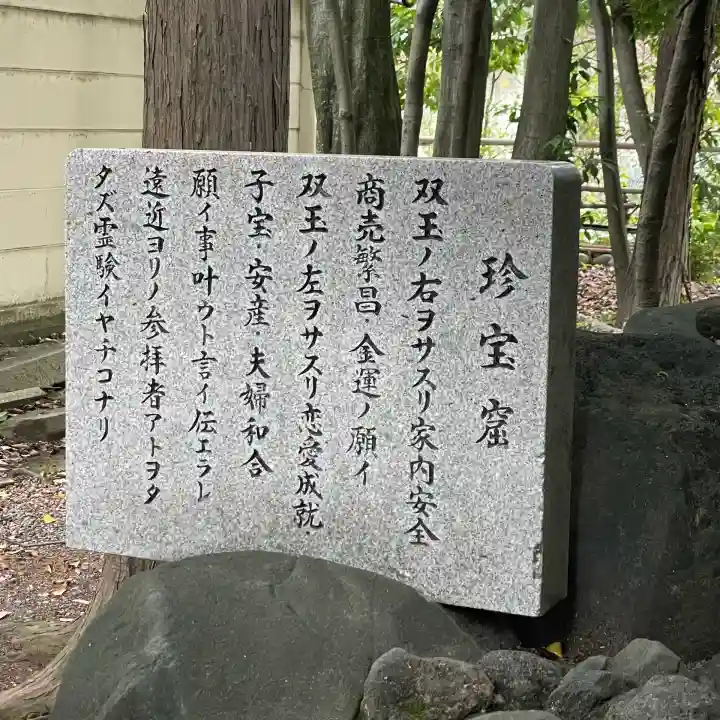 珍宝窟
双玉ノ右ヲサスリ家内安全
商売繁昌・金運ノ願イ
双玉ノ左ヲサスリ恋愛成就・
子宝・安産・夫婦和合
願イ事叶ウト言イ伝エラレ
遠近ヨリノ参拝者アトヲタ
タズ霊験イヤチコナリ